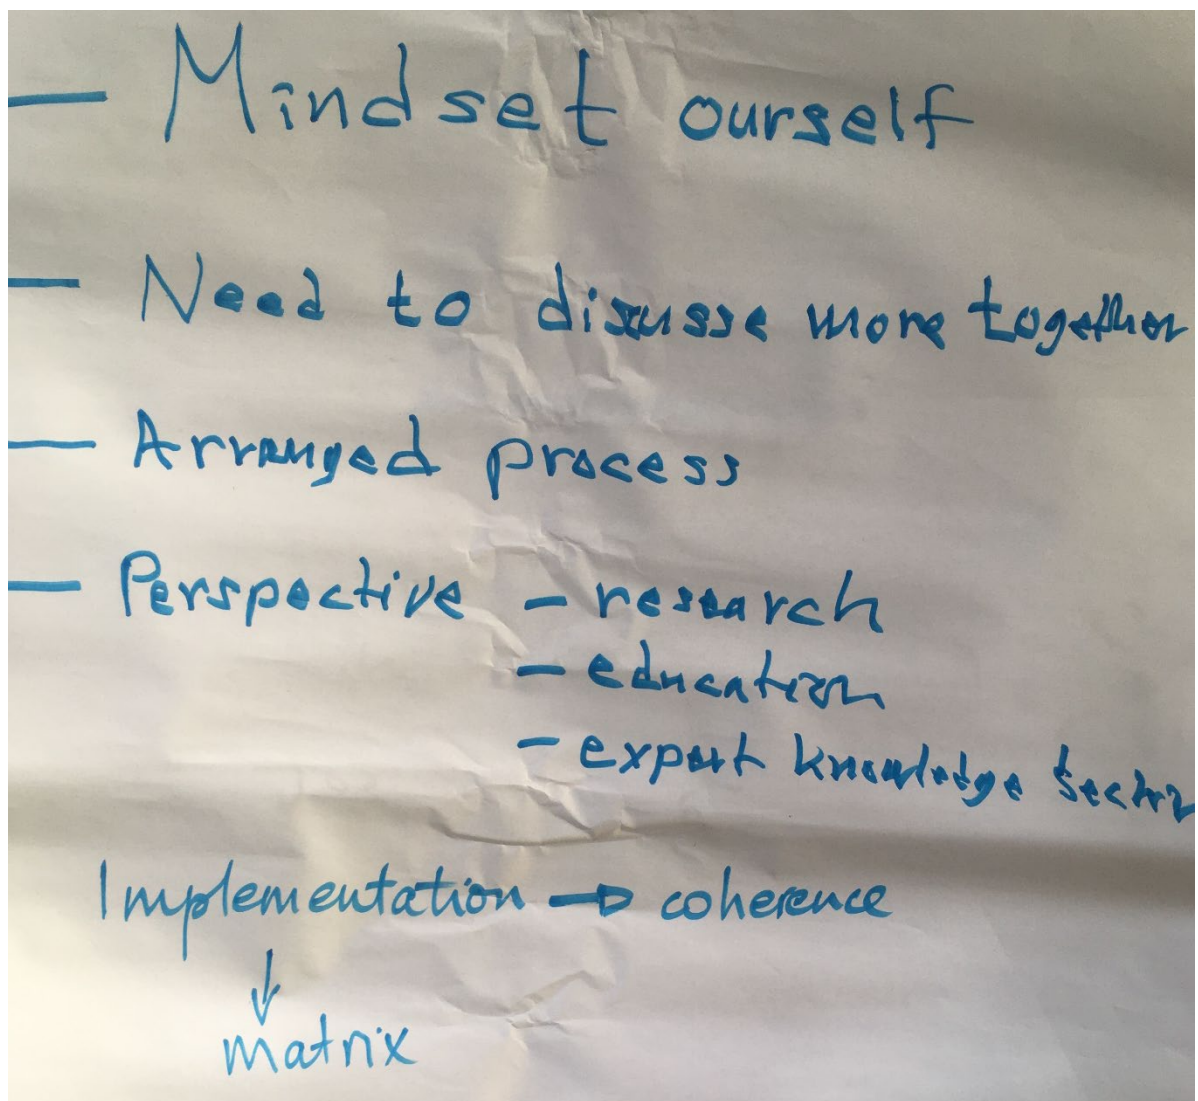 — Mindset ourself
— Need to discusse more together
— Arranged process
— Perspective – research
– education
– expert knowledge sector
Implementation → coherence
↓
matrix